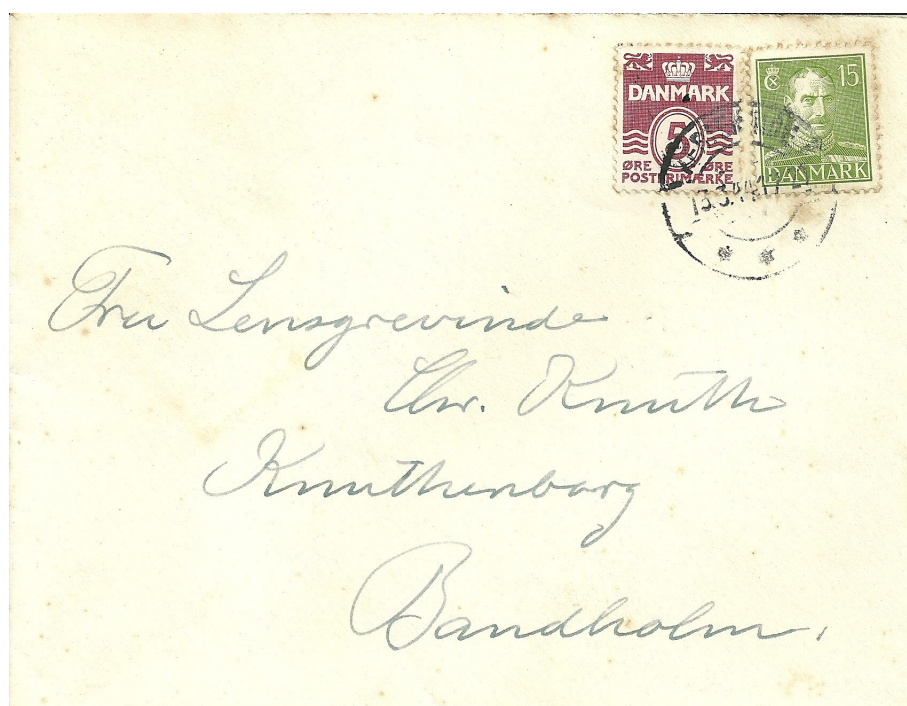 DANMARK
5
ØRE ØRE
POSTFRIMÆRKE
15
DANMARK
13.3.44.17
Fru Lensgrevinde
Chr. Knuth
Knuthenborg
Bandholm.